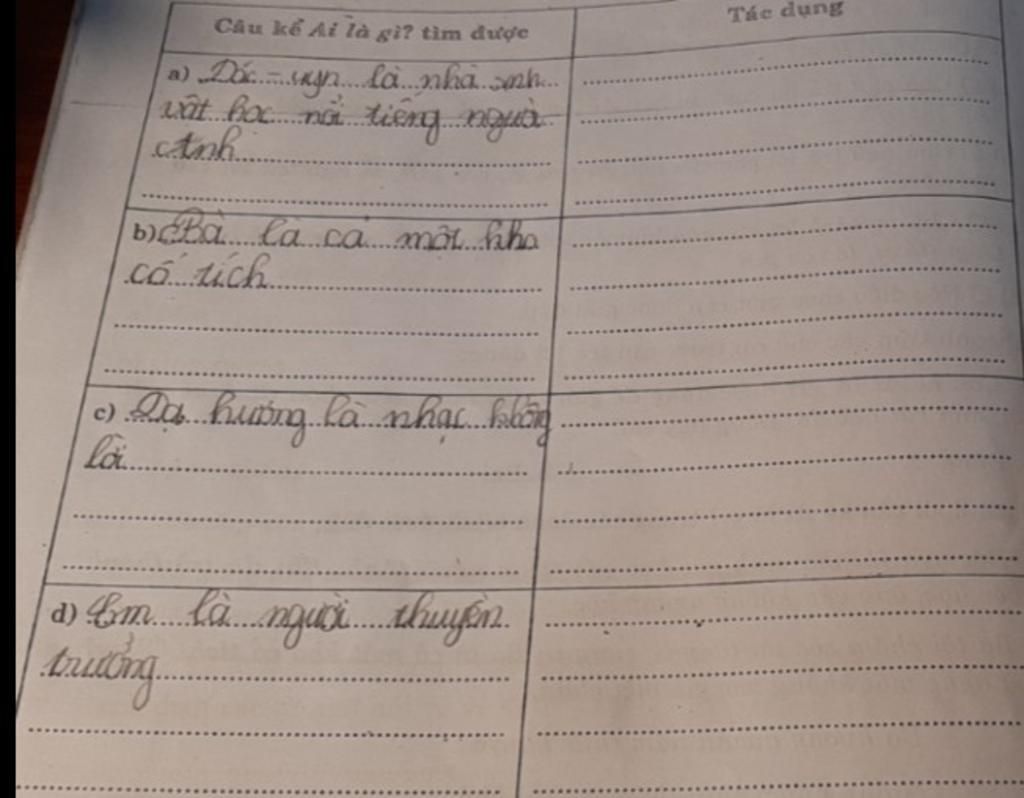 Câu kể Ai là gì? tìm được
Tác dụng
a) Đác-uyn là nhà sinh
vật học nổi tiếng người
Anh
b) Bà là cả một kho
cổ tích
c) Dạ hương là nhạc không
lời
d) Em là người thuyền
trưởng